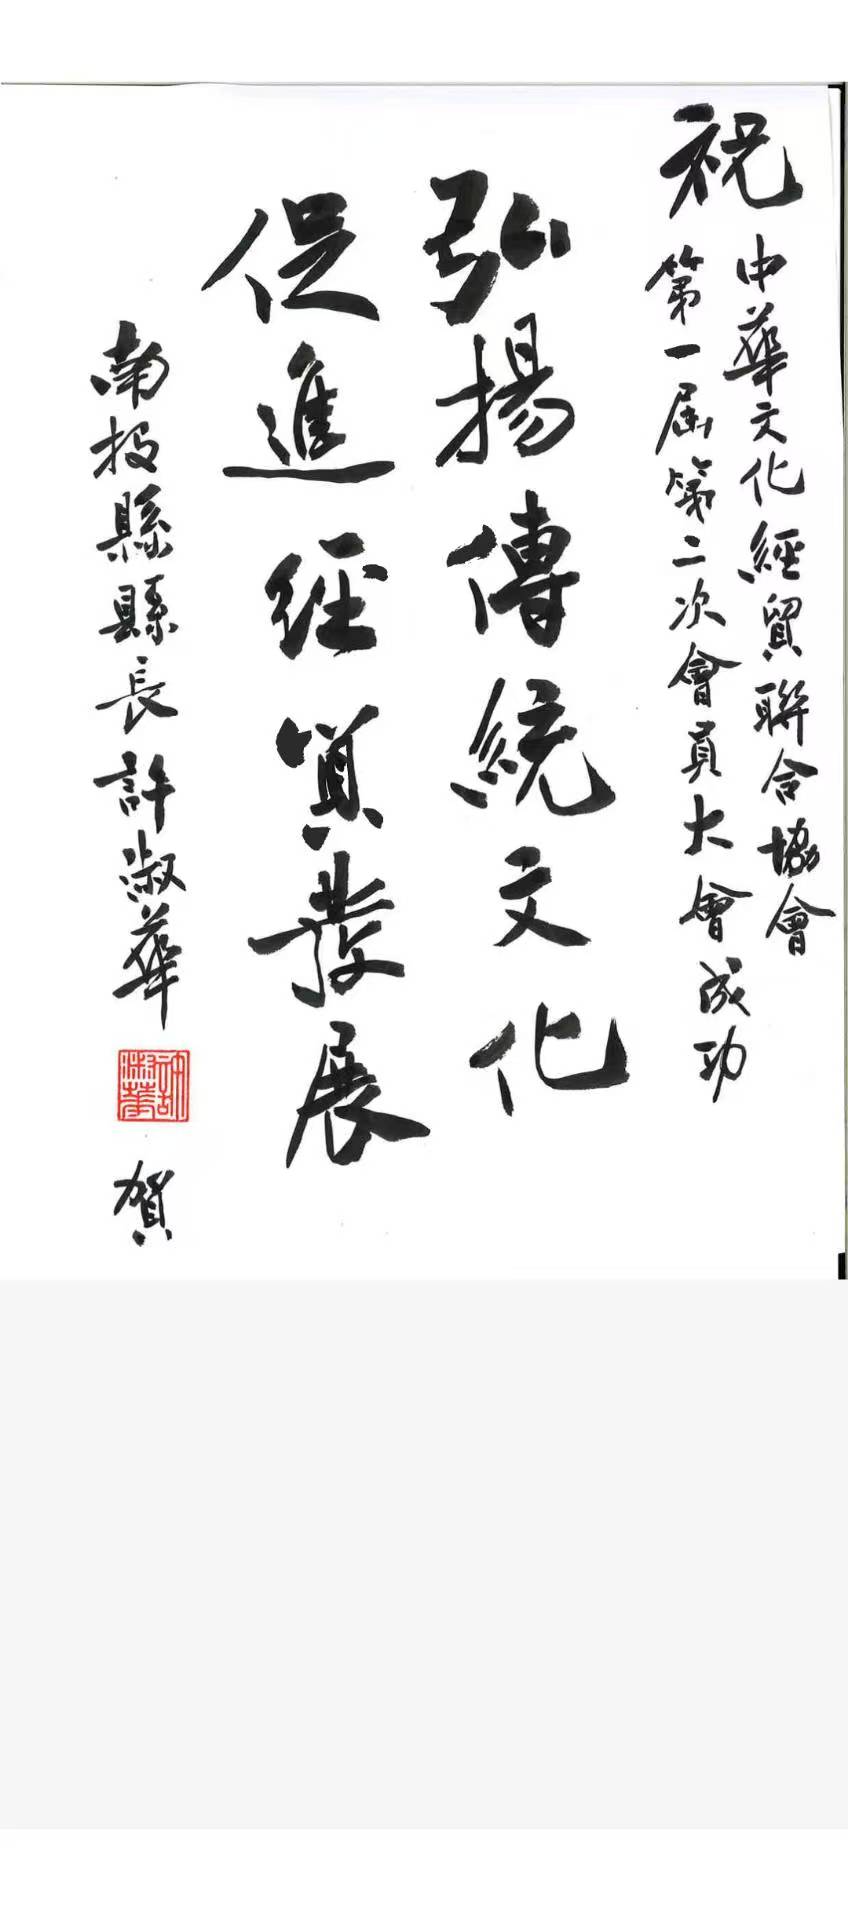 祝
中華文化經貿聯合協會
第一屆第二次會員大會成功
弘揚傳統文化
促進經貿發展
南投縣縣長許淑華
許淑華
賀